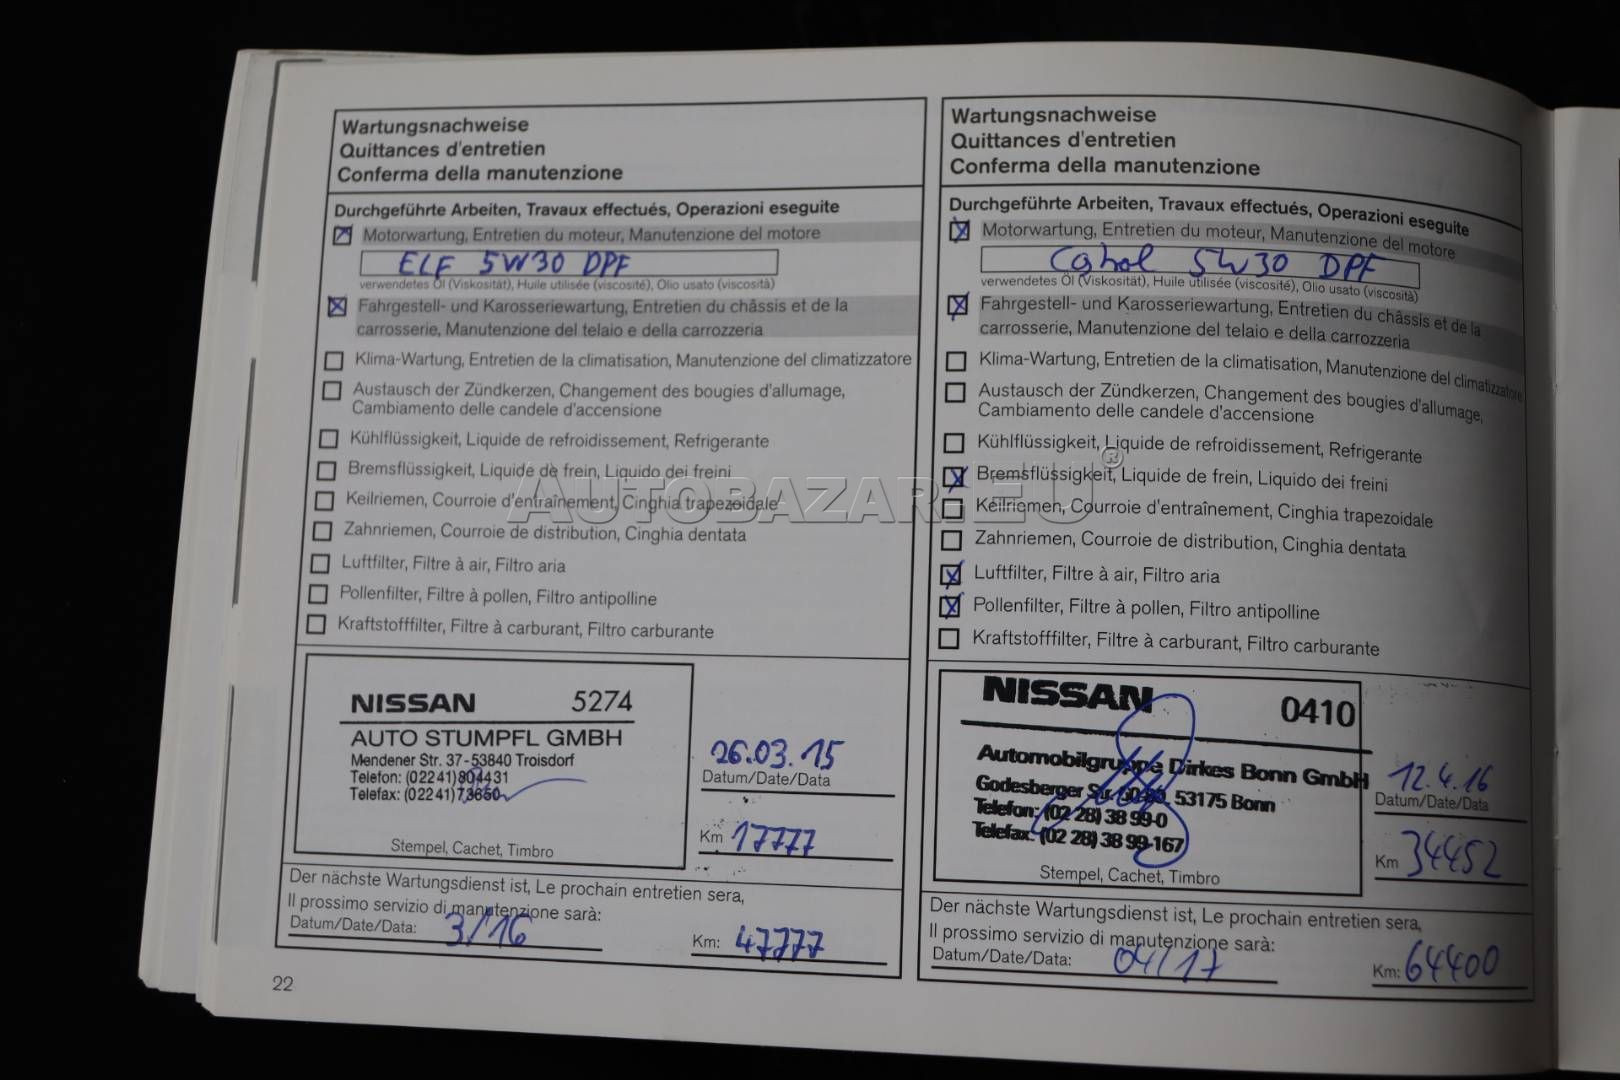 Wartungsnachweise
Quittances d'entretien
Conferma della manutenzione
Durchgeführte Arbeiten, Travaux effectués, Operazioni eseguite
Motorwartung, Entretien du moteur, Manutenzione del motore
ELF 5W30 DPF
verwendetes Öl (Viskosität), Huile utilisée (viscosité), Olio usato (viscosità)
Fahrgestell- und Karosseriewartung, Entretien du châssis et de la
carrosserie, Manutenzione del telaio e della carrozzeria
Klima-Wartung, Entretien de la climatisation, Manutenzione del climatizzatore
Austausch der Zündkerzen, Changement des bougies d'allumage,
Cambiamento delle candele d'accensione
Kühlflüssigkeit, Liquide de refroidissement, Refrigerante
Bremsflüssigkeit, Liquide de frein, Liquido dei freini
Keilriemen, Courroie d'entraînement, Cinghia trapezoidale
Zahnriemen, Courroie de distribution, Cinghia dentata
Luftfilter, Filtre à air, Filtro aria
Pollenfilter, Filtre à pollen, Filtro antipolline
Kraftstofffilter, Filtre à carburant, Filtro carburante
NISSAN 5274
AUTO STUMPFL GMBH
Mendener Str. 37-53840 Troisdorf
Telefon: (02241) 804431
Telefax: (02241) 73650
Stempel, Cachet, Timbro
26.03.15
Datum/Date/Data
Km 17777
Der nächste Wartungsdienst ist, Le prochain entretien sera,
Il prossimo servizio di manutenzione sarà:
Datum/Date/Data: 3/16
Km: 47777
22
Wartungsnachweise
Quittances d'entretien
Conferma della manutenzione
Durchgeführte Arbeiten, Travaux effectués, Operazioni eseguite
Motorwartung, Entretien du moteur, Manutenzione del motore
5W30 DPF
verwendetes Öl (Viskosität), Huile utilisée (viscosité), Olio usato (viscosità)
Fahrgestell- und Karosseriewartung, Entretien du châssis et de la
carrosserie, Manutenzione del telaio e della carrozzeria
Klima-Wartung, Entretien de la climatisation, Manutenzione del climatizzatore
Austausch der Zündkerzen, Changement des bougies d'allumage,
Cambiamento delle candele d'accensione
Kühlflüssigkeit, Liquide de refroidissement, Refrigerante
Bremsflüssigkeit, Liquide de frein, Liquido dei freini
Keilriemen, Courroie d'entraînement, Cinghia trapezoidale
Zahnriemen, Courroie de distribution, Cinghia dentata
Luftfilter, Filtre à air, Filtro aria
Pollenfilter, Filtre à pollen, Filtro antipolline
Kraftstofffilter, Filtre à carburant, Filtro carburante
NISSAN 0410
Automobilgruppe Dirkes Bonn GmbH
Godesberger Str. 53175 Bonn
Telefon: (02 28) 38 99-0
Telefax: (02 28) 38 99-167
Stempel, Cachet, Timbro
12.4.16
Datum/Date/Data
Km 34452
Der nächste Wartungsdienst ist, Le prochain entretien sera,
Il prossimo servizio di manutenzione sarà:
Datum/Date/Data: 04/17
Km: 64400
AUTOBAZAR.EU®